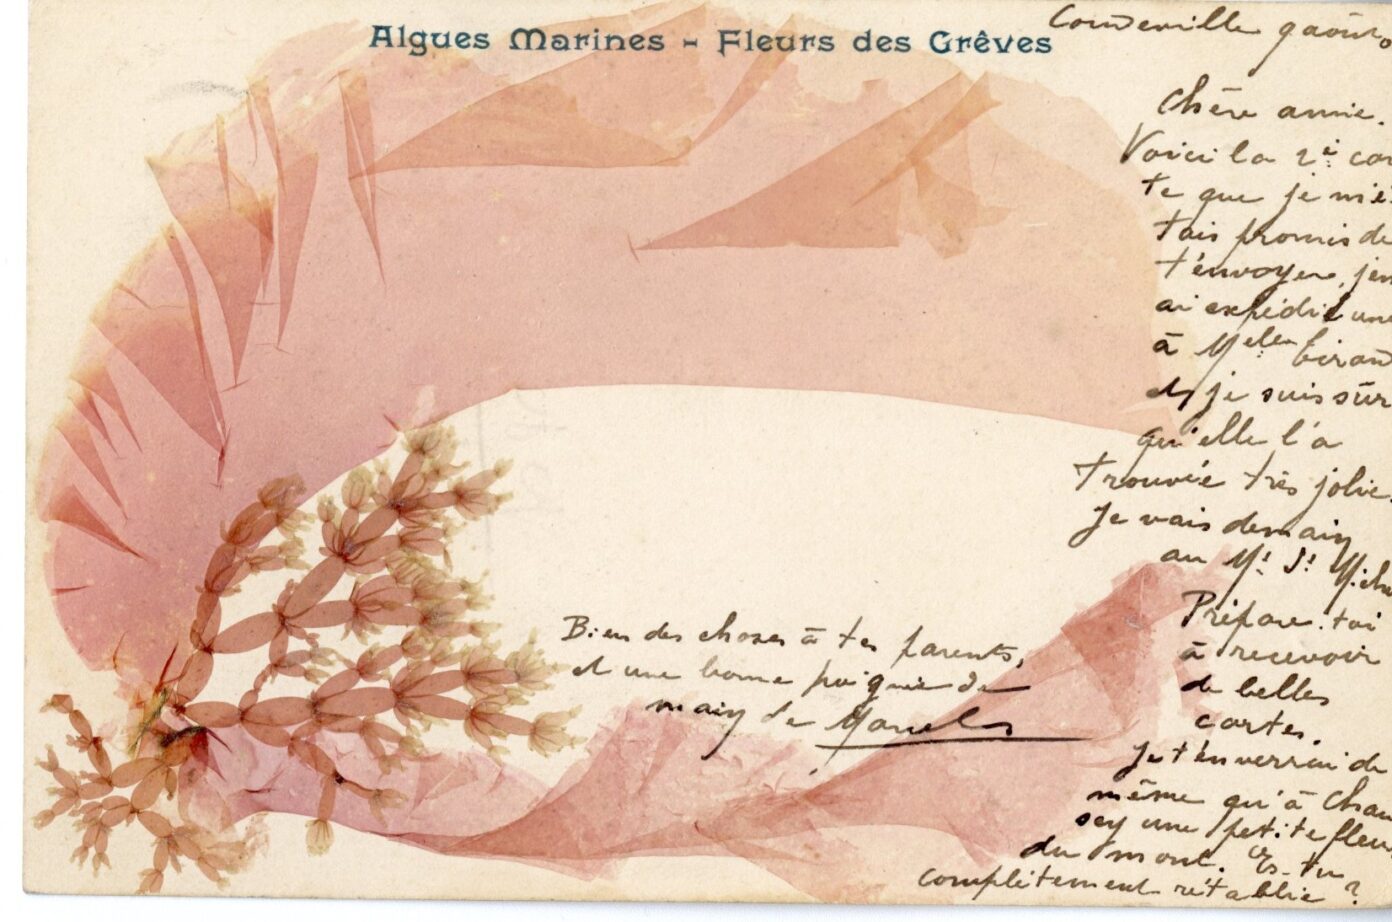 Algues Marines - Fleurs des Grêves
9 août
Chère amie.
Voici la 2e car
te que je m'é
tais promis de
t'envoyer, j'en
ai expédié une
à Melle
et je suis sûr
qu'elle l'a
trouvée très jolie.
Je vais demain
au Mt St Mich
Prépare-toi
à recevoir
de belles
cartes.
Je t'enverrai de
même qu'à Chau
sey une petite fleur
du mont. Es-tu
complètement rétablie ?
Bien des choses à tes parents,
et une bonne poignée de
main de